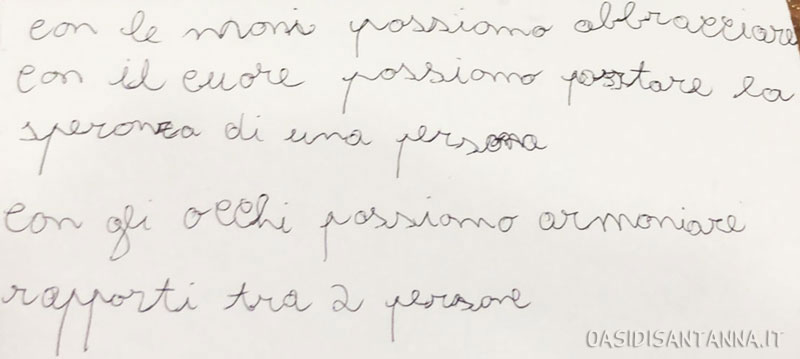 con le mani possiamo abbracciare
con il cuore possiamo portare la
speranza di una persona
con gli occhi possiamo armoniare
rapporti tra 2 persone
OASIDISANTANNA.IT